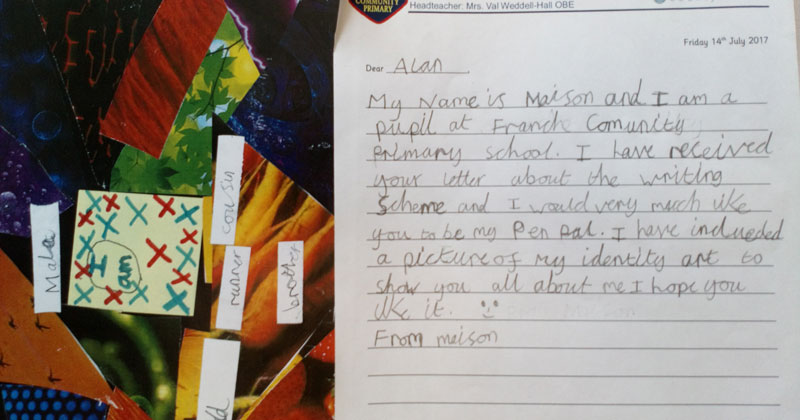 Male
I
am
cousin
runner
brother
COMMUNITY
PRIMARY
Headteacher: Mrs. Val Weddell-Hall OBE
Friday 14th July 2017
Dear Alan
My Name is Maison and I am a
pupil at Franche Comunity
primary school. I have received
your letter about the writing
scheme and I would very much like
you to be my Pen Pal. I have inclueded
a picture of my identity art to
show you all about me I hope you
like it. :)
From maison